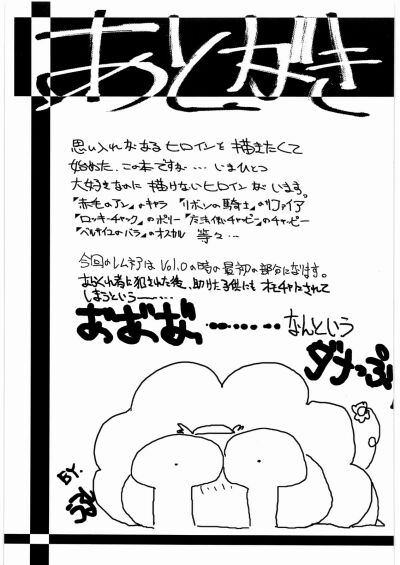 あとがき
思い入れがあるヒロインを描きたくて
始めた、この本ですが…いまひとつ
大好きなのに描けないヒロインがいます。
『赤毛のアン』のキャラ 『リボンの騎士』のサファイア
『ロッキーチャック』のポリー 『魔法使いチャッピー』のチャッピー
『ベルサイユのバラ』のオスカル 等々…
今回のレムネアはVol.0の時の最初の部分になります。
あらくれ者に犯された後、助けた子供にもオモチャにされて
しまうという―…
おっおっおっ………なんという
ダナっぷ
BY.